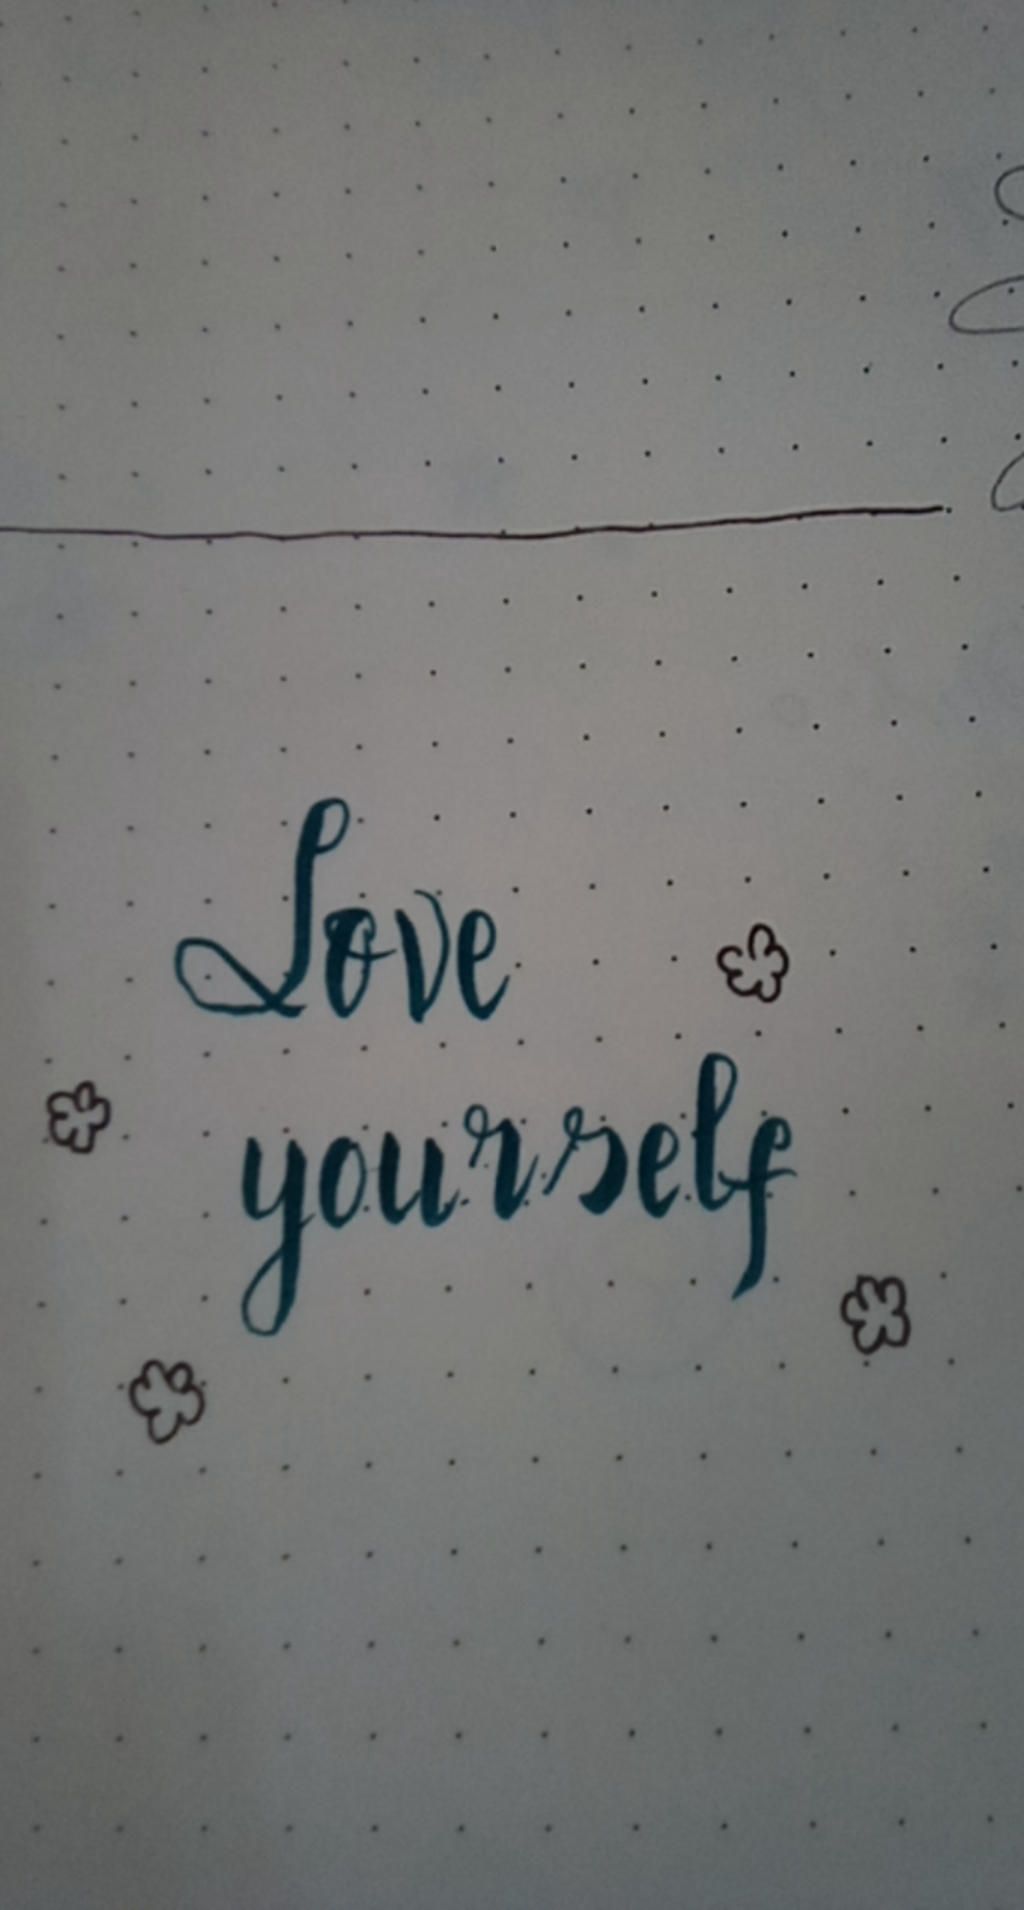 Love
yourself